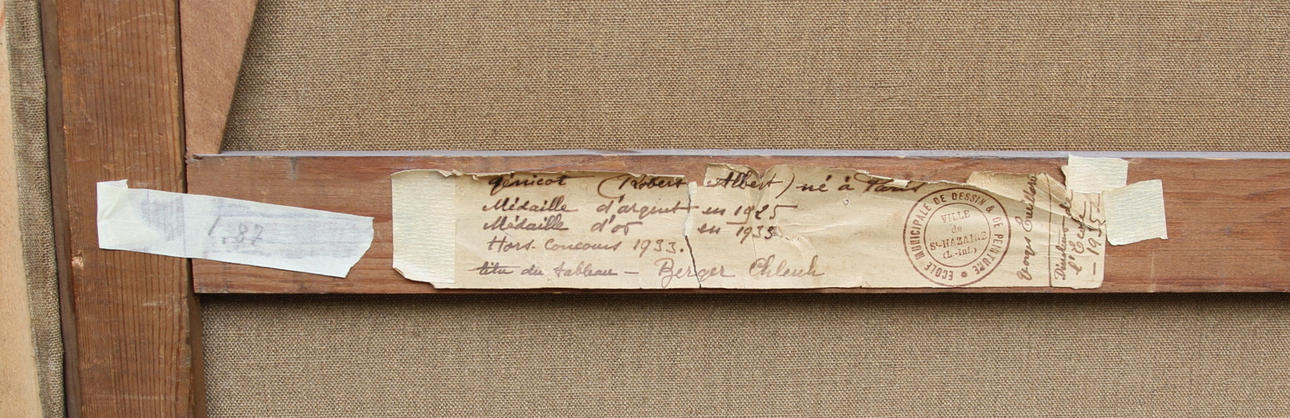 1.87
Génicot (Robert Albert) né à Paris
Médaille d'argent en 1925
Médaille d'or en 1933
Hors Concours 1933.
titre du tableau - Berger Chleuh
ECOLE MUNICIPALE DE DESSIN & DE PEINTURE
VILLE
de
St-NAZAIRE
(L.-Inf.)
Directeur de
l'Ecole
- 1935 -